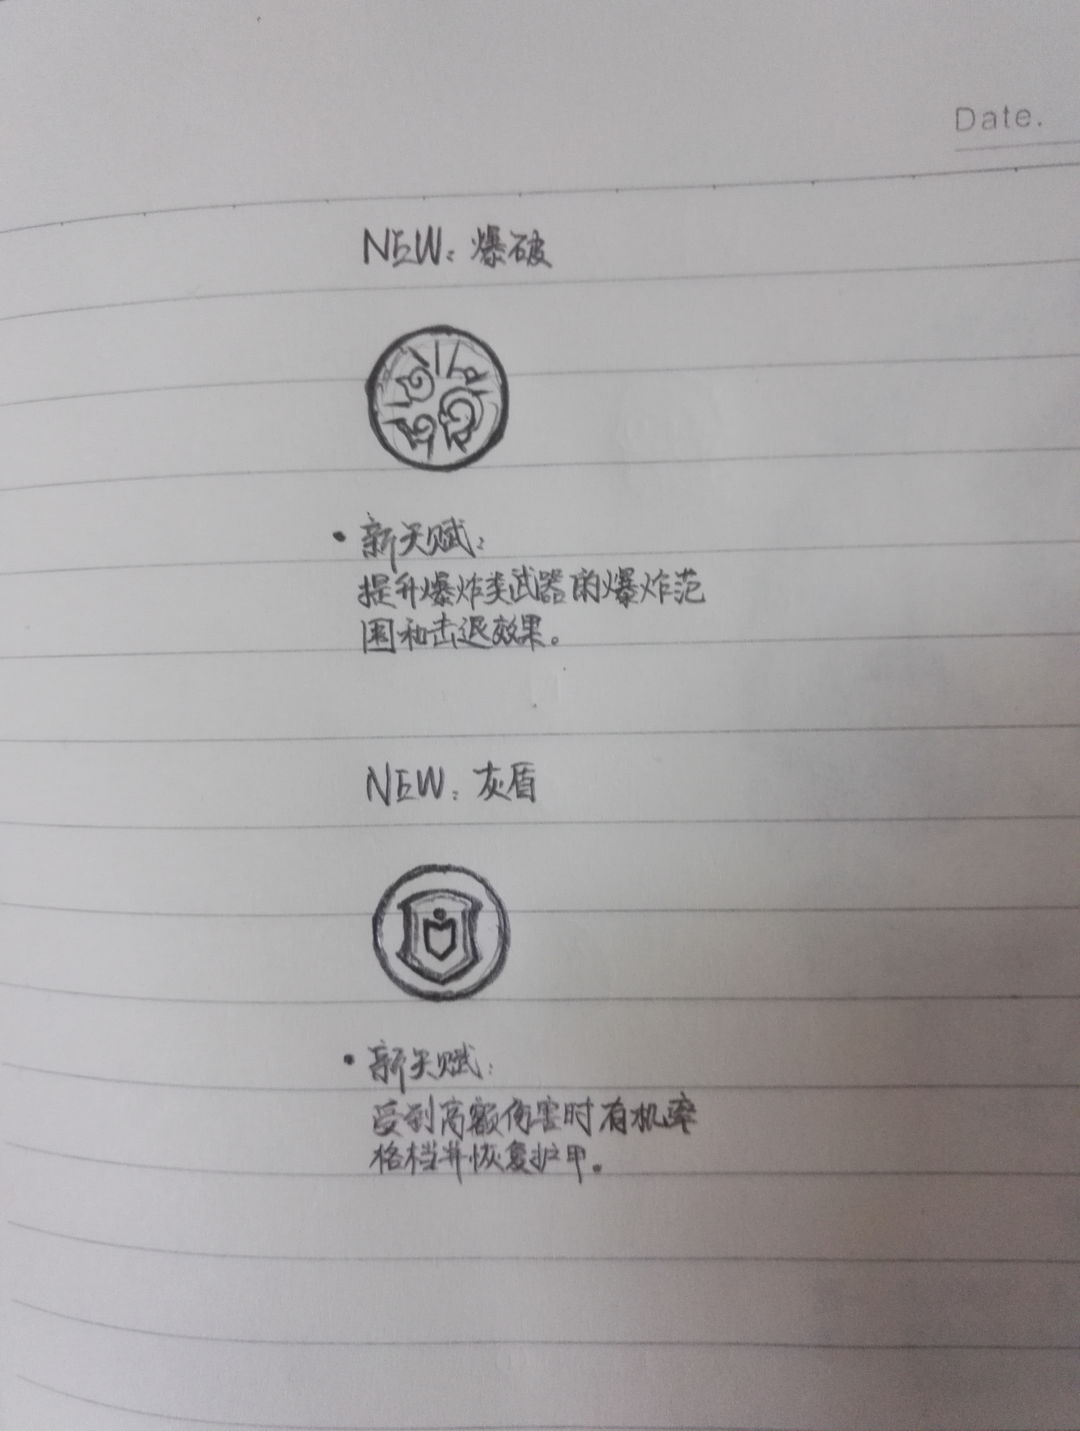 Date.
NEW：爆破
• 新天赋：
提升爆炸类武器的爆炸范
围和击退效果。
NEW：灰盾
• 新天赋：
受到高额伤害时有机率
格档并恢复护甲。